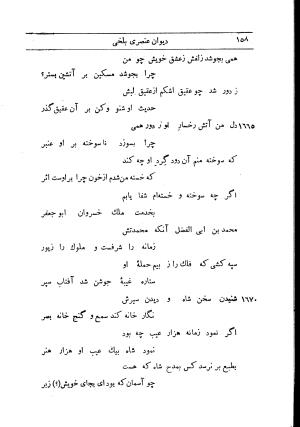 ۱۵۸ دیوان عنصری بلخی
همی بجوشد زلفش زعشق خویش چو من
چرا بجوشد مسکین بر آتشین بستر؟
ز رود شد چو عقیق اشکم ازعقیق لبش
حدیث او شنو وکن بر آن عقیق گذر
۱۶۶۵ دل من آتش رخسار او ز رود همی
چرا بسوزد ناسوخته بر او عنبر
که سوخته منم آن رود گرد او چه کند
که خسته من‌شدم ازخون چرا براوست اثر
اگر چه سوخته و خسته‌ام شفا یابم
بخدمت ملك خسروان ابوجعفر
محمد بن ابی الفضل آنکه محمدتش
زمانه را شرفست و ملوك را زیور
سپه کشی که فلك را ز بیم حملهٔ او
ستاره غیبهٔ جوشن شد آفتاب سپر
۱۶۷۰ شنیدن سخن شاه و دیدن سپرش
نگار خانه کند سمع و گنج خانه بصر
اگر نمود زمانه هزار عیب چه بود
نمود شاه بیك عیب او هزار هنر
بطبع بر نرسد کس بمدح شاه که هست
چو آسمان که بود ای بجای خویش(؟) زبر